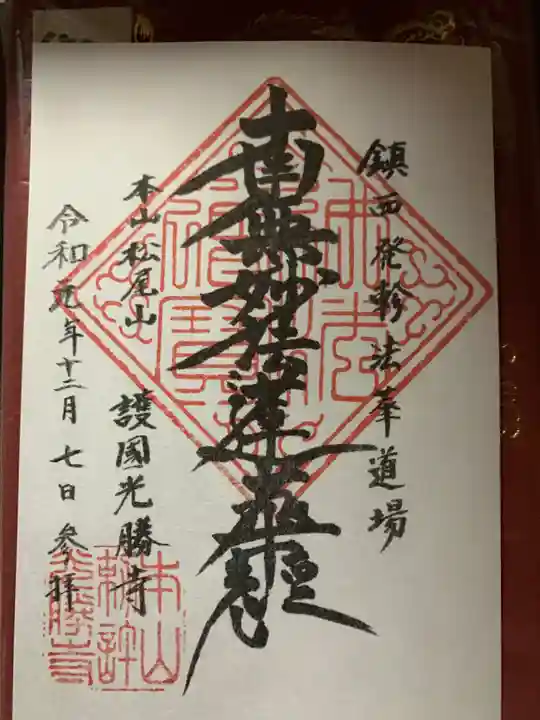 鎮西発軫法華道場
南無妙法蓮華経
本山松尾山
護國光勝寺
令和元年十二月七日参拝
本山
光勝寺